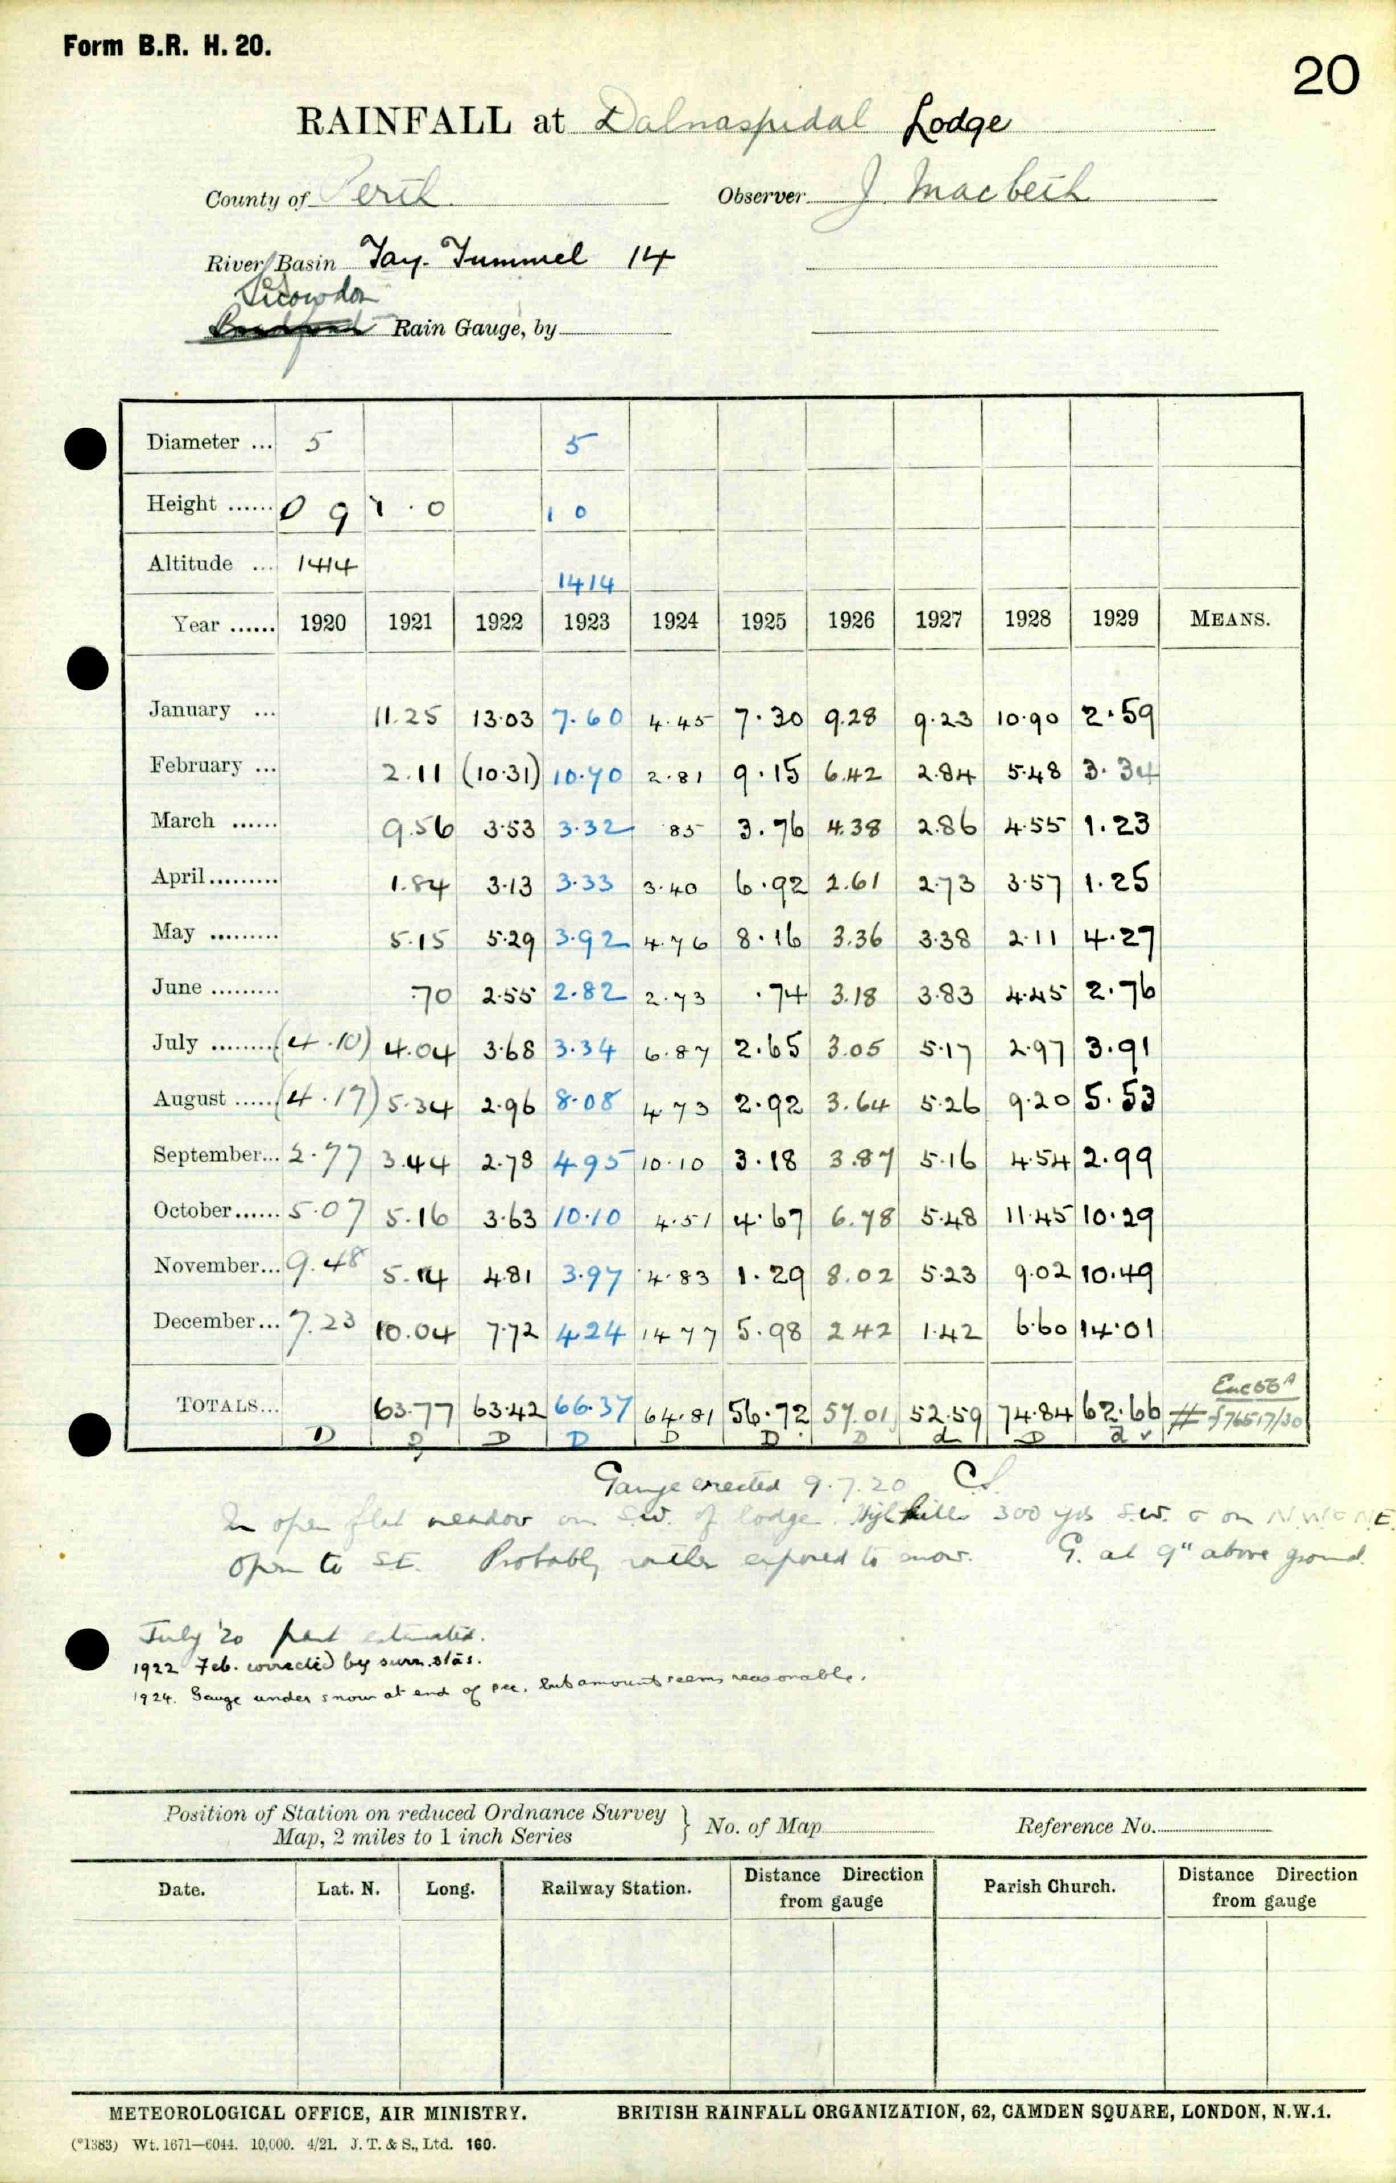 Form B.R. H. 20.
20
RAINFALL at Dalnaspidal Lodge
County of Perth Observer J. Macbeth
River Basin Tay. Tummel 14
Snowdon
Rain Gauge, by
Diameter ... 5 5
Height ...... 0 9 1 . 0 1 0
Altitude ... 1414 1414
Year ...... 1920 1921 1922 1923 1924 1925 1926 1927 1928 1929 MEANS.
January ... 11.25 13.03 7.60 4.45 7.30 9.28 9.23 10.90 2.59
February ... 2.11 (10.31) 10.70 2.81 9.15 6.42 2.84 5.48 3.34
March ...... 9.56 3.53 3.32 85 3.76 4.38 2.86 4.55 1.23
April......... 1.84 3.13 3.33 3.40 6.92 2.61 2.73 3.57 1.25
May ......... 5.15 5.29 3.92 4.76 8.16 3.36 3.38 2.11 4.27
June ......... .70 2.55 2.82 2.73 .74 3.18 3.83 4.45 2.76
July ......... (4.10) 4.04 3.68 3.34 6.87 2.65 3.05 5.17 2.97 3.91
August ...... (4.17) 5.34 2.96 8.08 4.73 2.92 3.64 5.26 9.20 5.53
September... 2.77 3.44 2.78 4.95 10.10 3.18 3.87 5.16 4.54 2.99
October...... 5.07 5.16 3.63 10.10 4.51 4.67 6.78 5.48 11.45 10.29
November... 9.48 5.14 4.81 3.97 4.83 1.29 8.02 5.23 9.02 10.49
December... 7.23 10.04 7.72 4.24 14 77 5.98 2.42 1.42 6.60 14.01
TOTALS... 63.77 63.42 66.37 64.81 56.72 57.01 52.59 74.84 62.66
D D D D D D D d D d
Gauge erected 9.7.20
In open flat meadow on S.W. of lodge. hills 300 yds S.W. & on N.W & N.E.
Open to S.E. Probably rather exposed to snow. G. at 9" above ground.
July '20 part estimated.
1922 Feb. corrected by surr. stas.
1924. Gauge under snow at end of Dec. but amount seems reasonable.
Position of Station on reduced Ordnance Survey
Map, 2 miles to 1 inch Series } No. of Map Reference No.
Date. Lat. N. Long. Railway Station. Distance Direction from gauge Parish Church. Distance Direction from gauge
METEOROLOGICAL OFFICE, AIR MINISTRY. BRITISH RAINFALL ORGANIZATION, 62, CAMDEN SQUARE, LONDON, N.W.1.
(*1383) Wt. 1671—6044. 10,000. 4/21. J. T. & S., Ltd. 160.